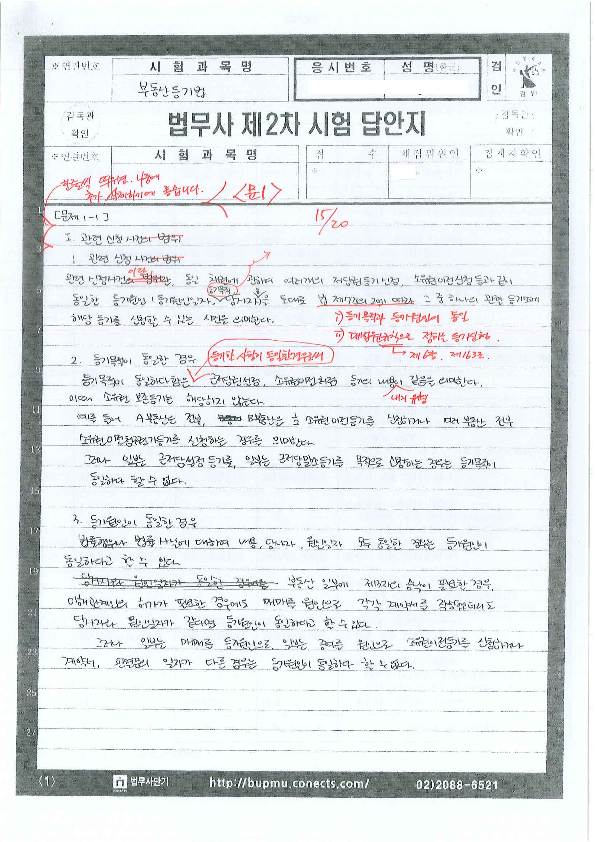 ※연간번호
시 험 과 목 명
응 시 번 호
성 명
검
인
부동산등기법
감독관
확인
법무사 제2차 시험 답안지
감독관
확인
※연간번호
시 험 과 목 명
점 수
채점위원인
검채자확인
한줄씩 띄우면 나중에
추가 하기에 좋습니다.
<문1>
15/20
[문제 1-1]
1. 관련 신청사건의
관련 신청사건이란 동일 채권에 관하여 여러개의 저당권등기신청, 소유권이전신청 등과 같이
동일한 등기원인 (등기원인일자, 당사자)을 토대로 그 중 하나의 관할 등기소에
해당 등기를 신청할 수 있는 사건을 의미한다.
i) 등기목적과 등기원인이 동일
ii) 대법원규칙으로 정하는 등기신청
제6항, 제163조
2. 등기목적이 동일한 경우
등기할 사항이 동일한 경우로써
등기목적이 동일하다 함은 근저당권설정, 소유권이전 등기의 내용이 같음을 의미한다.
내지 유형
이때 소유권 보존등기는 해당하지 않는다.
예를 들어 A부동산은 전부, B부동산은 소유권이전등기를 신청하거나 여러 부동산 전부
소유권이전등기를 신청하는 경우를 의미한다.
그러나 일부는 근저당설정등기를, 일부는 근저당말소등기를 목적으로 신청하는 경우는 등기목적이
동일하다 할 수 없다.
3. 등기원인이 동일한 경우
법률 사실에 대하여 내용, 당사자, 원인일자 모두 동일한 경우는 등기원인이
동일하다고 할 수 있다.
부동산 일부에 제3자의 승낙이 필요한 경우,
허가가 필요한 경우에도 매매를 원인으로 각각 계약서를 작성하더라도
당사자와 원인일자가 같다면 등기원인이 동일하다고 할 수 있다.
그러나 일부는 매매를 등기원인으로, 일부는 증여를 원인으로 소유권이전등기를 신청하거나
계약서, 판결문의 일자가 다른 경우는 등기원인이 동일하다 할 수 없다.
(1)
법무사단기
http://bupmu.conects.com/
02)2088-6521